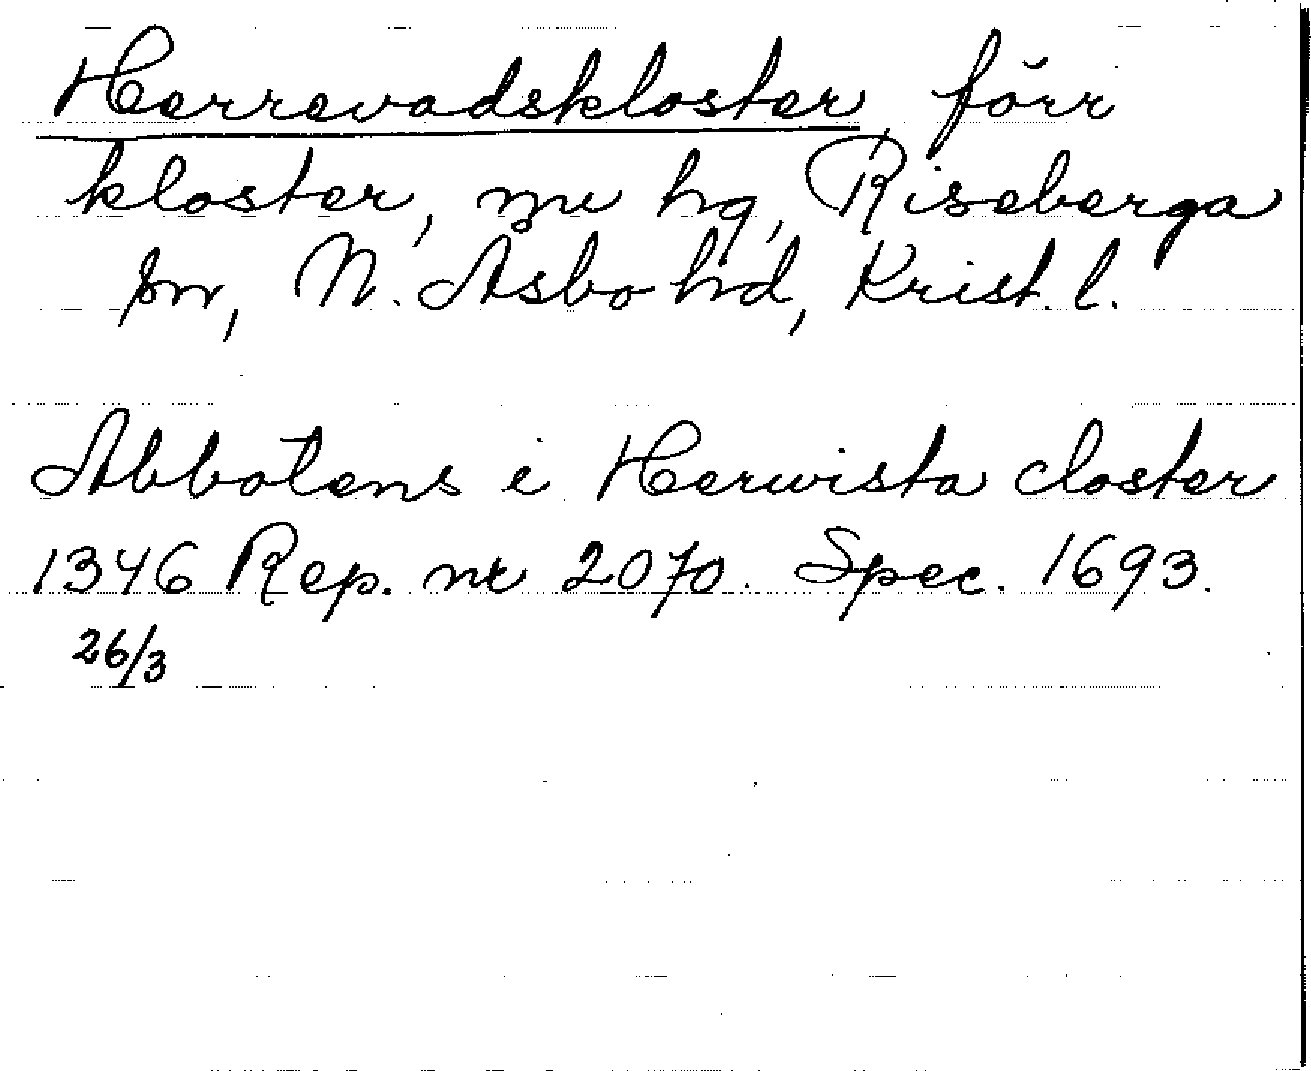 Herrevadskloster, förr
kloster, nu hg, Riseberga
sn, N. Åsbo hd, Krist. l.
Abbotens i Herwista closter
1346 Rep. nr 2070. Spec. 1693.
26/3